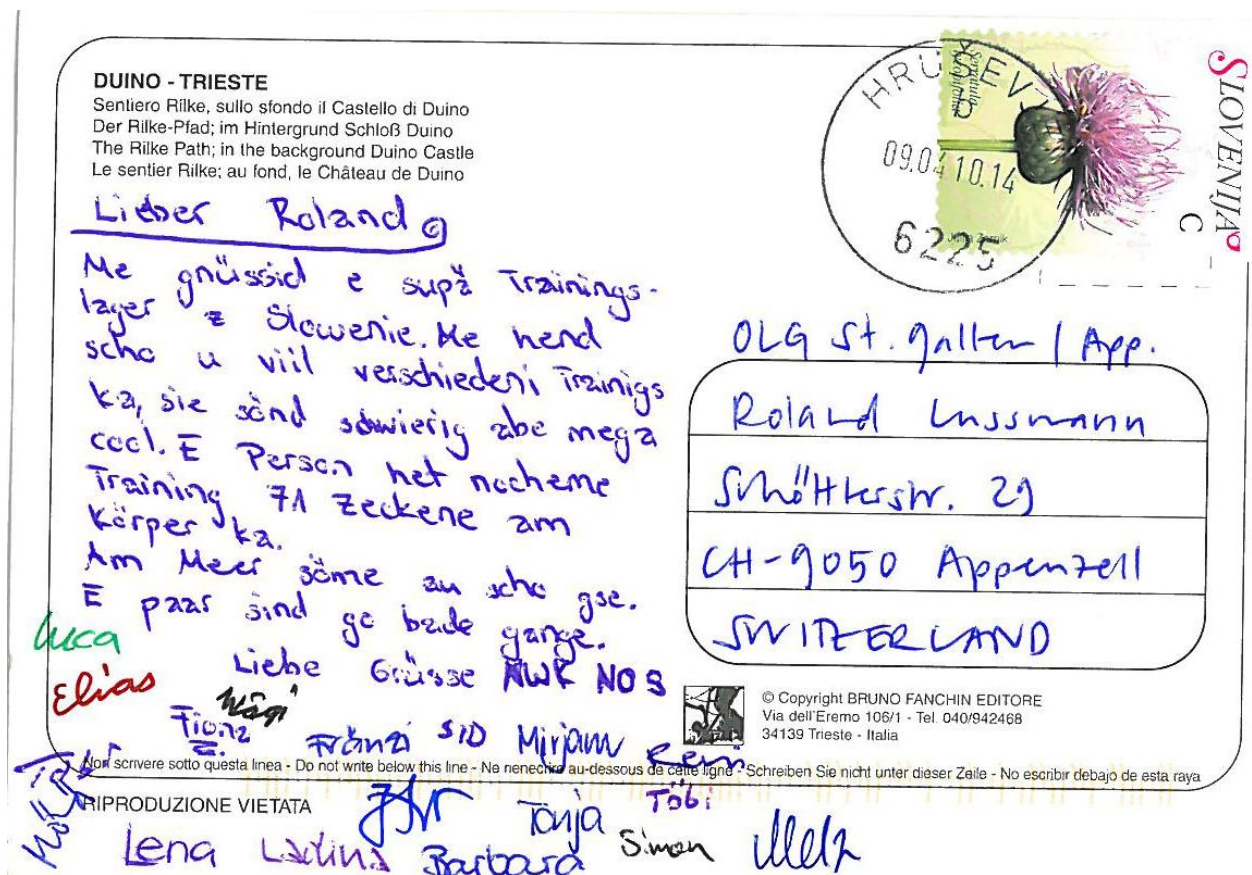 DUINO - TRIESTE
Sentiero Rilke, sullo sfondo il Castello di Duino
Der Rilke-Pfad; im Hintergrund Schloß Duino
The Rilke Path; in the background Duino Castle
Le sentier Rilke; au fond, le Château de Duino
Lieber Roland
Me gnüssid e supä Trainings-
lager z Slowenie. Me hend
scho u viil verschiedeni Trainigs
ka, sie sönd schwierig abe mega
cool. E Person het nocheme
Training 71 Zeckene am
Körper ka.
Am Meer söme au scho gse.
E paar sind ge bade gange.
Liebe Grüsse NWK NOS
Luca
Elias
Fiona
Fränzi SID Mirjam
Remi
Töbi
Tanja
Lena Ladina Barbara Simon
SLOVENIJA
C
09.04.10.14
6225
OLG St. Gallen / App.
Roland Lussmann
Schöttlerstr. 29
CH-9050 Appenzell
SWITZERLAND
© Copyright BRUNO FANCHIN EDITORE
Via dell'Eremo 106/1 - Tel. 040/942468
34139 Trieste - Italia
Non scrivere sotto questa linea - Do not write below this line - Ne nenecrire au-dessous de cette ligne - Schreiben Sie nicht unter dieser Zeile - No escribir debajo de esta raya
RIPRODUZIONE VIETATA